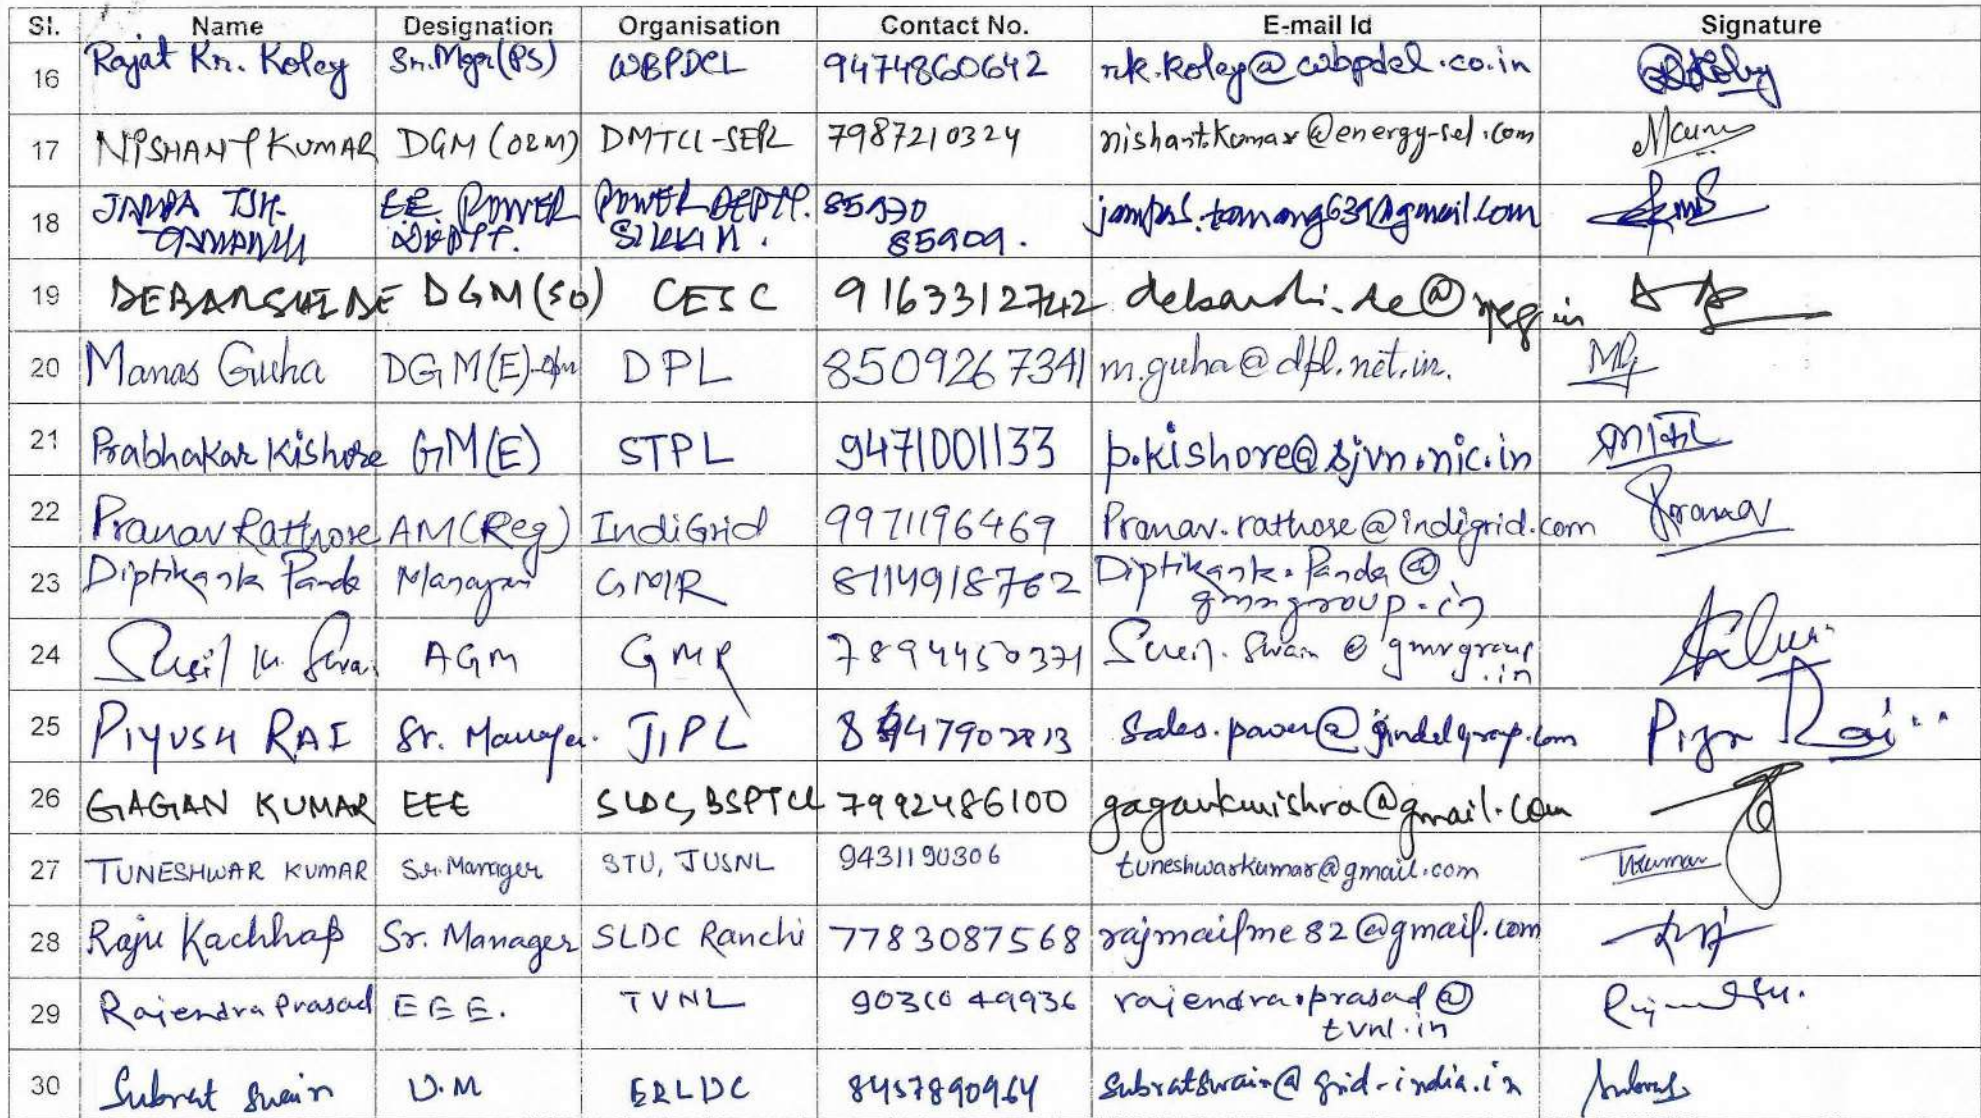 Sl. Name Designation Organisation Contact No. E-mail Id Signature
16 Rajat Kr. Koley Sr. Mgr (PS) WBPDCL 9474860642 rk.koley@wbpdcl.co.in
17 NISHANT KUMAR DGM (O&M) DMTCL-SEPL 7987210324 nishant.kumar@energy-sel.com
18 JAMPA TSH. E.E. POWER POWER DEPTT. 85970
TAMANG DEPTT. SIKKIM. 85909.
19 DEBARSHI DE DGM (SO) CESC 9163312742
20 Manas Guha DGM(E) DPL 8509267341 m.guha@dpl.net.in.
21 Prabhakar Kishore GM(E) STPL 9471001133 p.kishore@sjvn.nic.in
22 Pranav Rathore AM(Reg) IndiGrid 9971196469 Pranav.rathore@indigrid.com Pranav
23 Diptikanta Panda Manager GMR 8114918762 Diptikanta.Panda@
gmrgroup.in
24 AGM GMR 7894450371 Susil.Swain@gmrgroup
.in
25 PIYUSH RAI Sr. Manager. JIPL sales.power@jindalgroup.com
26 GAGAN KUMAR EEE SLDC, BSPTCL 7992486100 gagankmishra@gmail.com
27 TUNESHWAR KUMAR Sr. Manager STU, JUSNL 9431190306 tuneshwarkumar@gmail.com TKumar
28 Raju Kachhap Sr. Manager SLDC Ranchi 7783087568 rajmailme82@gmail.com
29 Rajendra Prasad EEE. TVNL 9031049936 rajendra.prasad@
tvnl.in
30 Subrat Swain D.M ERLDC 8457890964 subratswain@grid-india.in